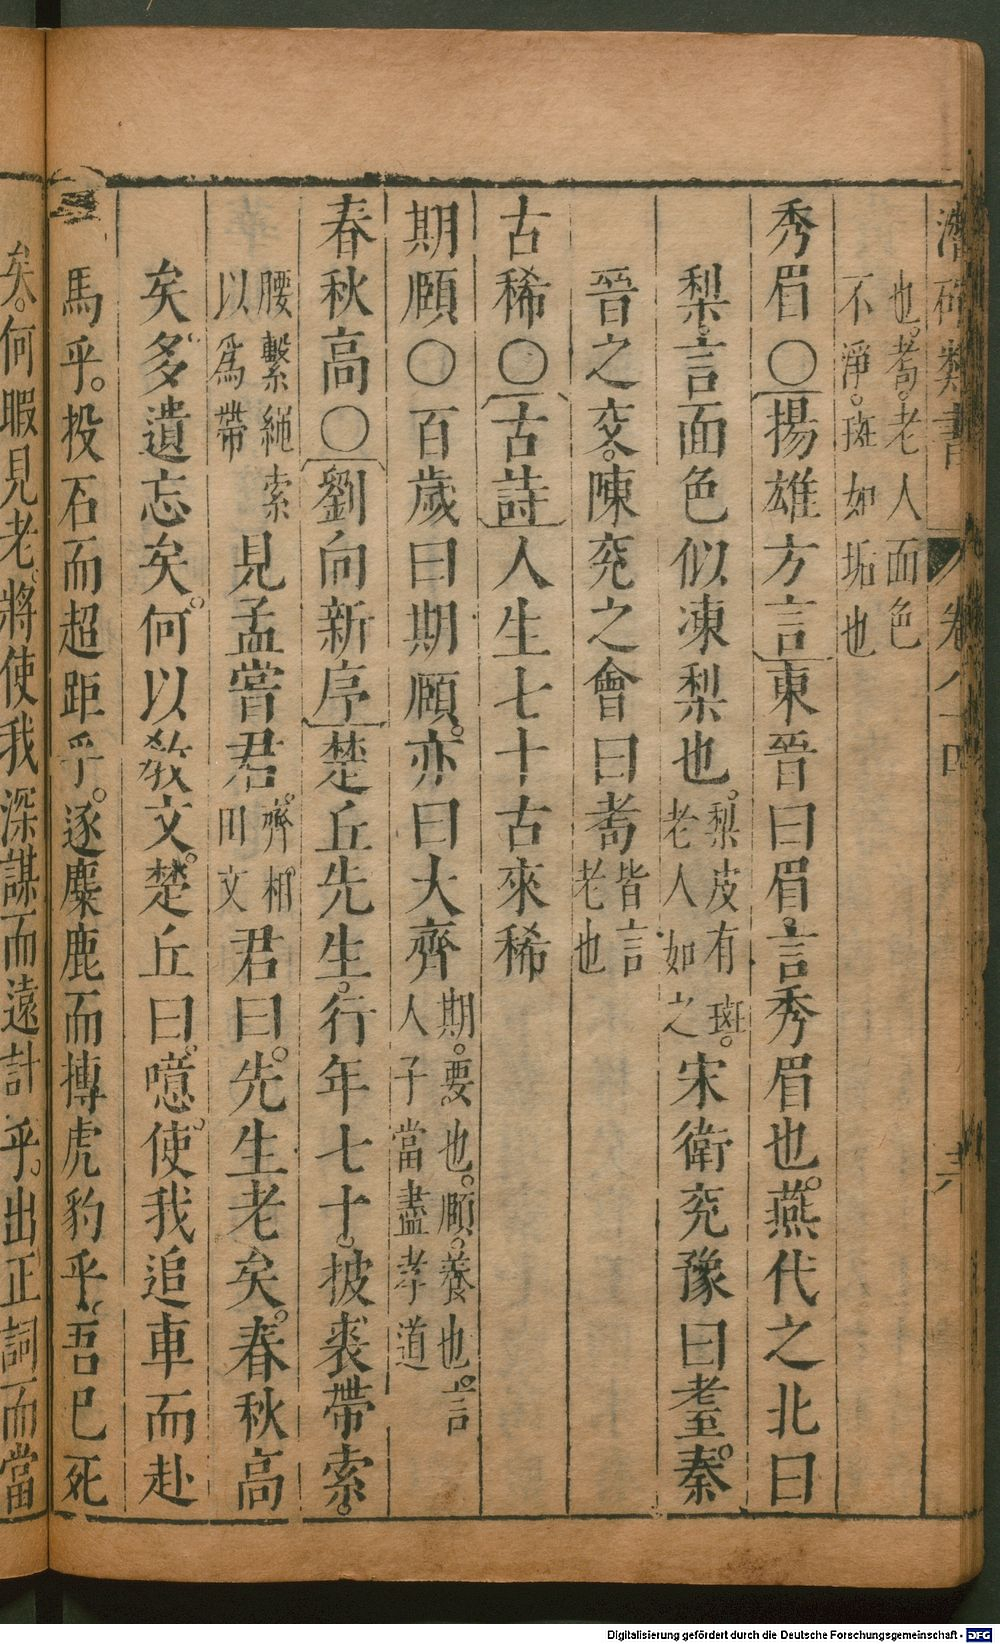 潛確類書 卷八十四
也。耈。老人面色
不淨。斑如垢也
秀眉〇揚雄方言東晉曰眉。言秀眉也。燕代之北曰
梨。言面色似凍梨也。梨皮有斑。老人如之宋衛兖豫曰耋。秦
晉之交。陳兖之會曰耇皆言老也
古稀〇古詩人生七十古來稀
期頤〇百歲曰期頤。亦曰大齊期。要也。頤。養也。言人子當盡孝道
春秋高〇劉向新序楚丘先生。行年七十。披裘帶索。
腰繫繩索以爲帶見孟嘗君。齊相。田文君曰。先生老矣。春秋高
矣。多遺忘矣。何以教文。楚丘曰。噫。使我追車而赴
馬乎。投石而超距乎。逐麋鹿而搏虎豹乎。吾巳死
矣。何暇見老。將使我深謀而遠計乎。出正詞而當
Digitalisierung gefördert durch die Deutsche Forschungsgemeinschaft - DFG